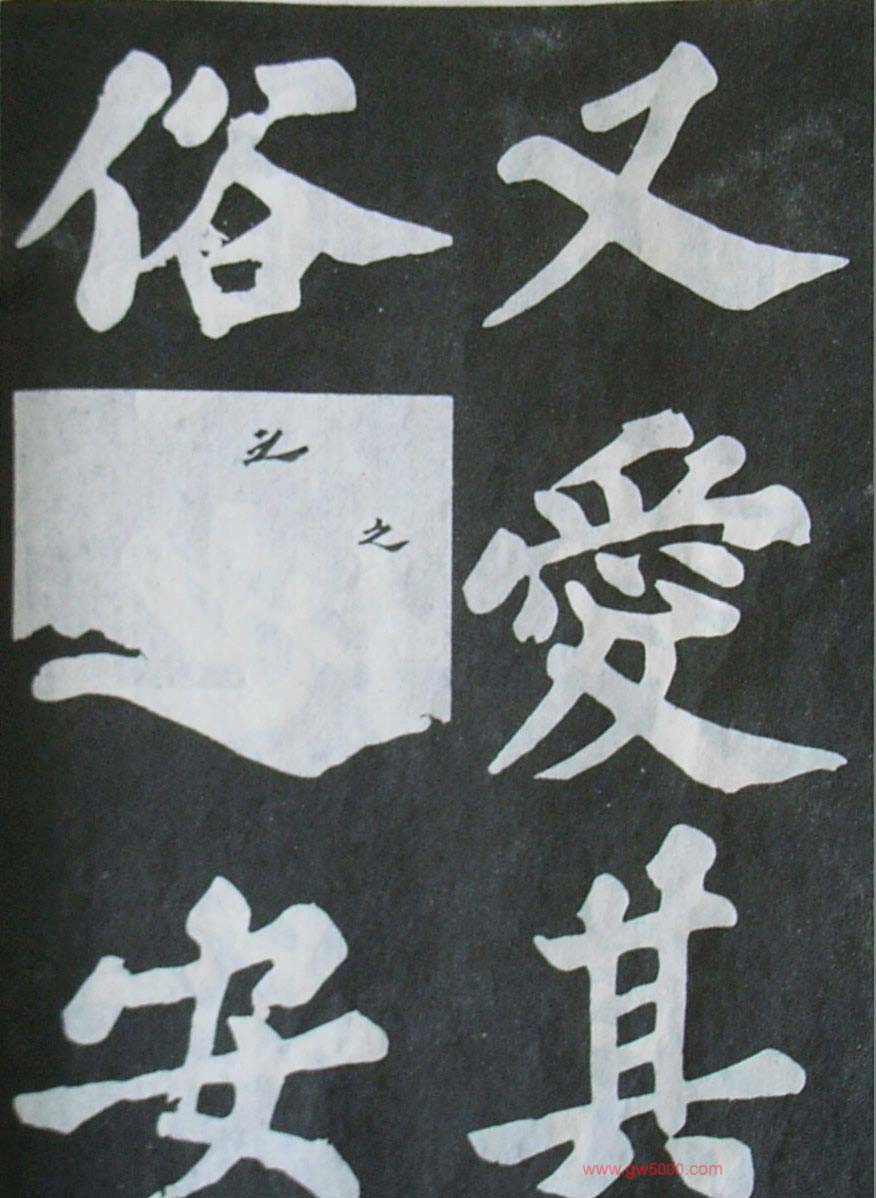 又愛其
俗之安
www.gw5000.com